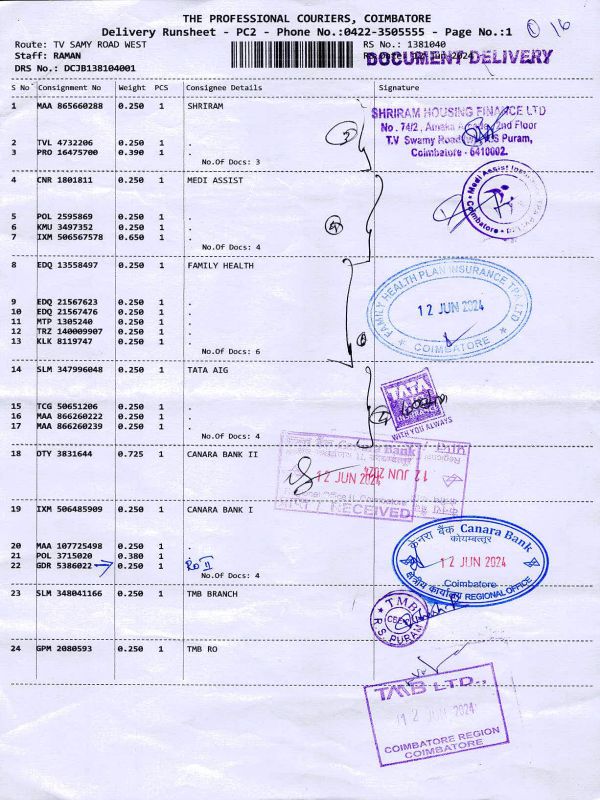 THE PROFESSIONAL COURIERS, COIMBATORE
Delivery Runsheet - PC2 - Phone No.:0422-3505555 - Page No.:1
16
Route: TV SAMY ROAD WEST RS No.: 1381040
Staff: RAMAN
DOCUMENT DELIVERY
DRS No.: DCJB138104001
S No Consignment No Weight PCS Consignee Details Signature
1 MAA 865660288 0.250 1 SHRIRAM
SHRIRAM HOUSING FINANCE LTD
No. 74/2, 2nd Floor
T.V Swamy Road Puram,
Coimbatore - 6410002.
2 TVL 4732206 0.250 1 .
3 PRO 16475700 0.390 1 .
No.Of Docs: 3
4 CNR 1801811 0.250 1 MEDI ASSIST
Medi Assist
Coimbatore
5 POL 2595869 0.250 1 .
6 KMU 3497352 0.250 1 .
7 IXM 506567578 0.650 1 .
No.Of Docs: 4
8 EDQ 13558497 0.250 1 FAMILY HEALTH
FAMILY HEALTH PLAN INSURANCE TPA LTD
12 JUN 2024
COIMBATORE
9 EDQ 21567623 0.250 1 .
10 EDQ 21567476 0.250 1 .
11 MTP 1305240 0.250 1 .
12 TRZ 140009907 0.250 1 .
13 KLK 8119747 0.250 1 .
No.Of Docs: 6
14 SLM 347996048 0.250 1 TATA AIG
TATA
WITH YOU ALWAYS
15 TCG 50651206 0.250 1 .
16 MAA 866260222 0.250 1 .
17 MAA 866260239 0.250 1 .
No.Of Docs: 4
18 OTY 3831644 0.725 1 CANARA BANK II
Canara Bank
Regional
12 JUN 2024
12 JUN
RECEIVED
19 IXM 506485909 0.250 1 CANARA BANK I
केनरा बैंक Canara Bank
कोयम्बत्तूर
12 JUN 2024
Coimbatore
क्षेत्रीय कार्यालय REGIONAL OFFICE
20 MAA 107725498 0.250 1 .
21 POL 3715020 0.380 1 .
22 GDR 5386022 0.250 1 Ro II
No.Of Docs: 4
23 SLM 348041166 0.250 1 TMB BRANCH
TMB
R.S. PURAM
24 GPM 2080593 0.250 1 TMB RO
TMB LTD.,
12 JUN 2024
COIMBATORE REGION
COIMBATORE